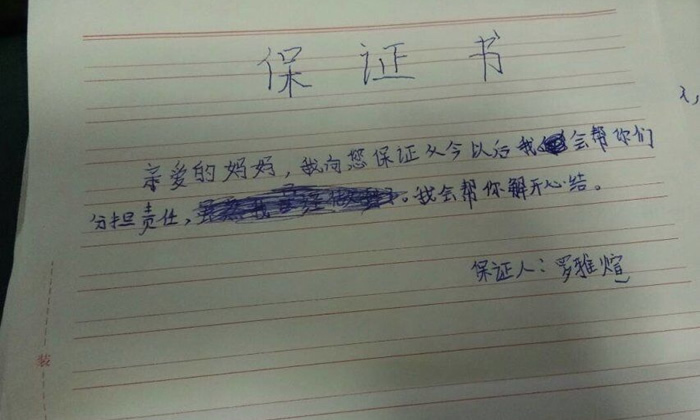 保证书
亲爱的妈妈，我向您保证从今以后我会帮你们
分担责任，。我会帮你解开心结。
保证人：罗雅煊
装